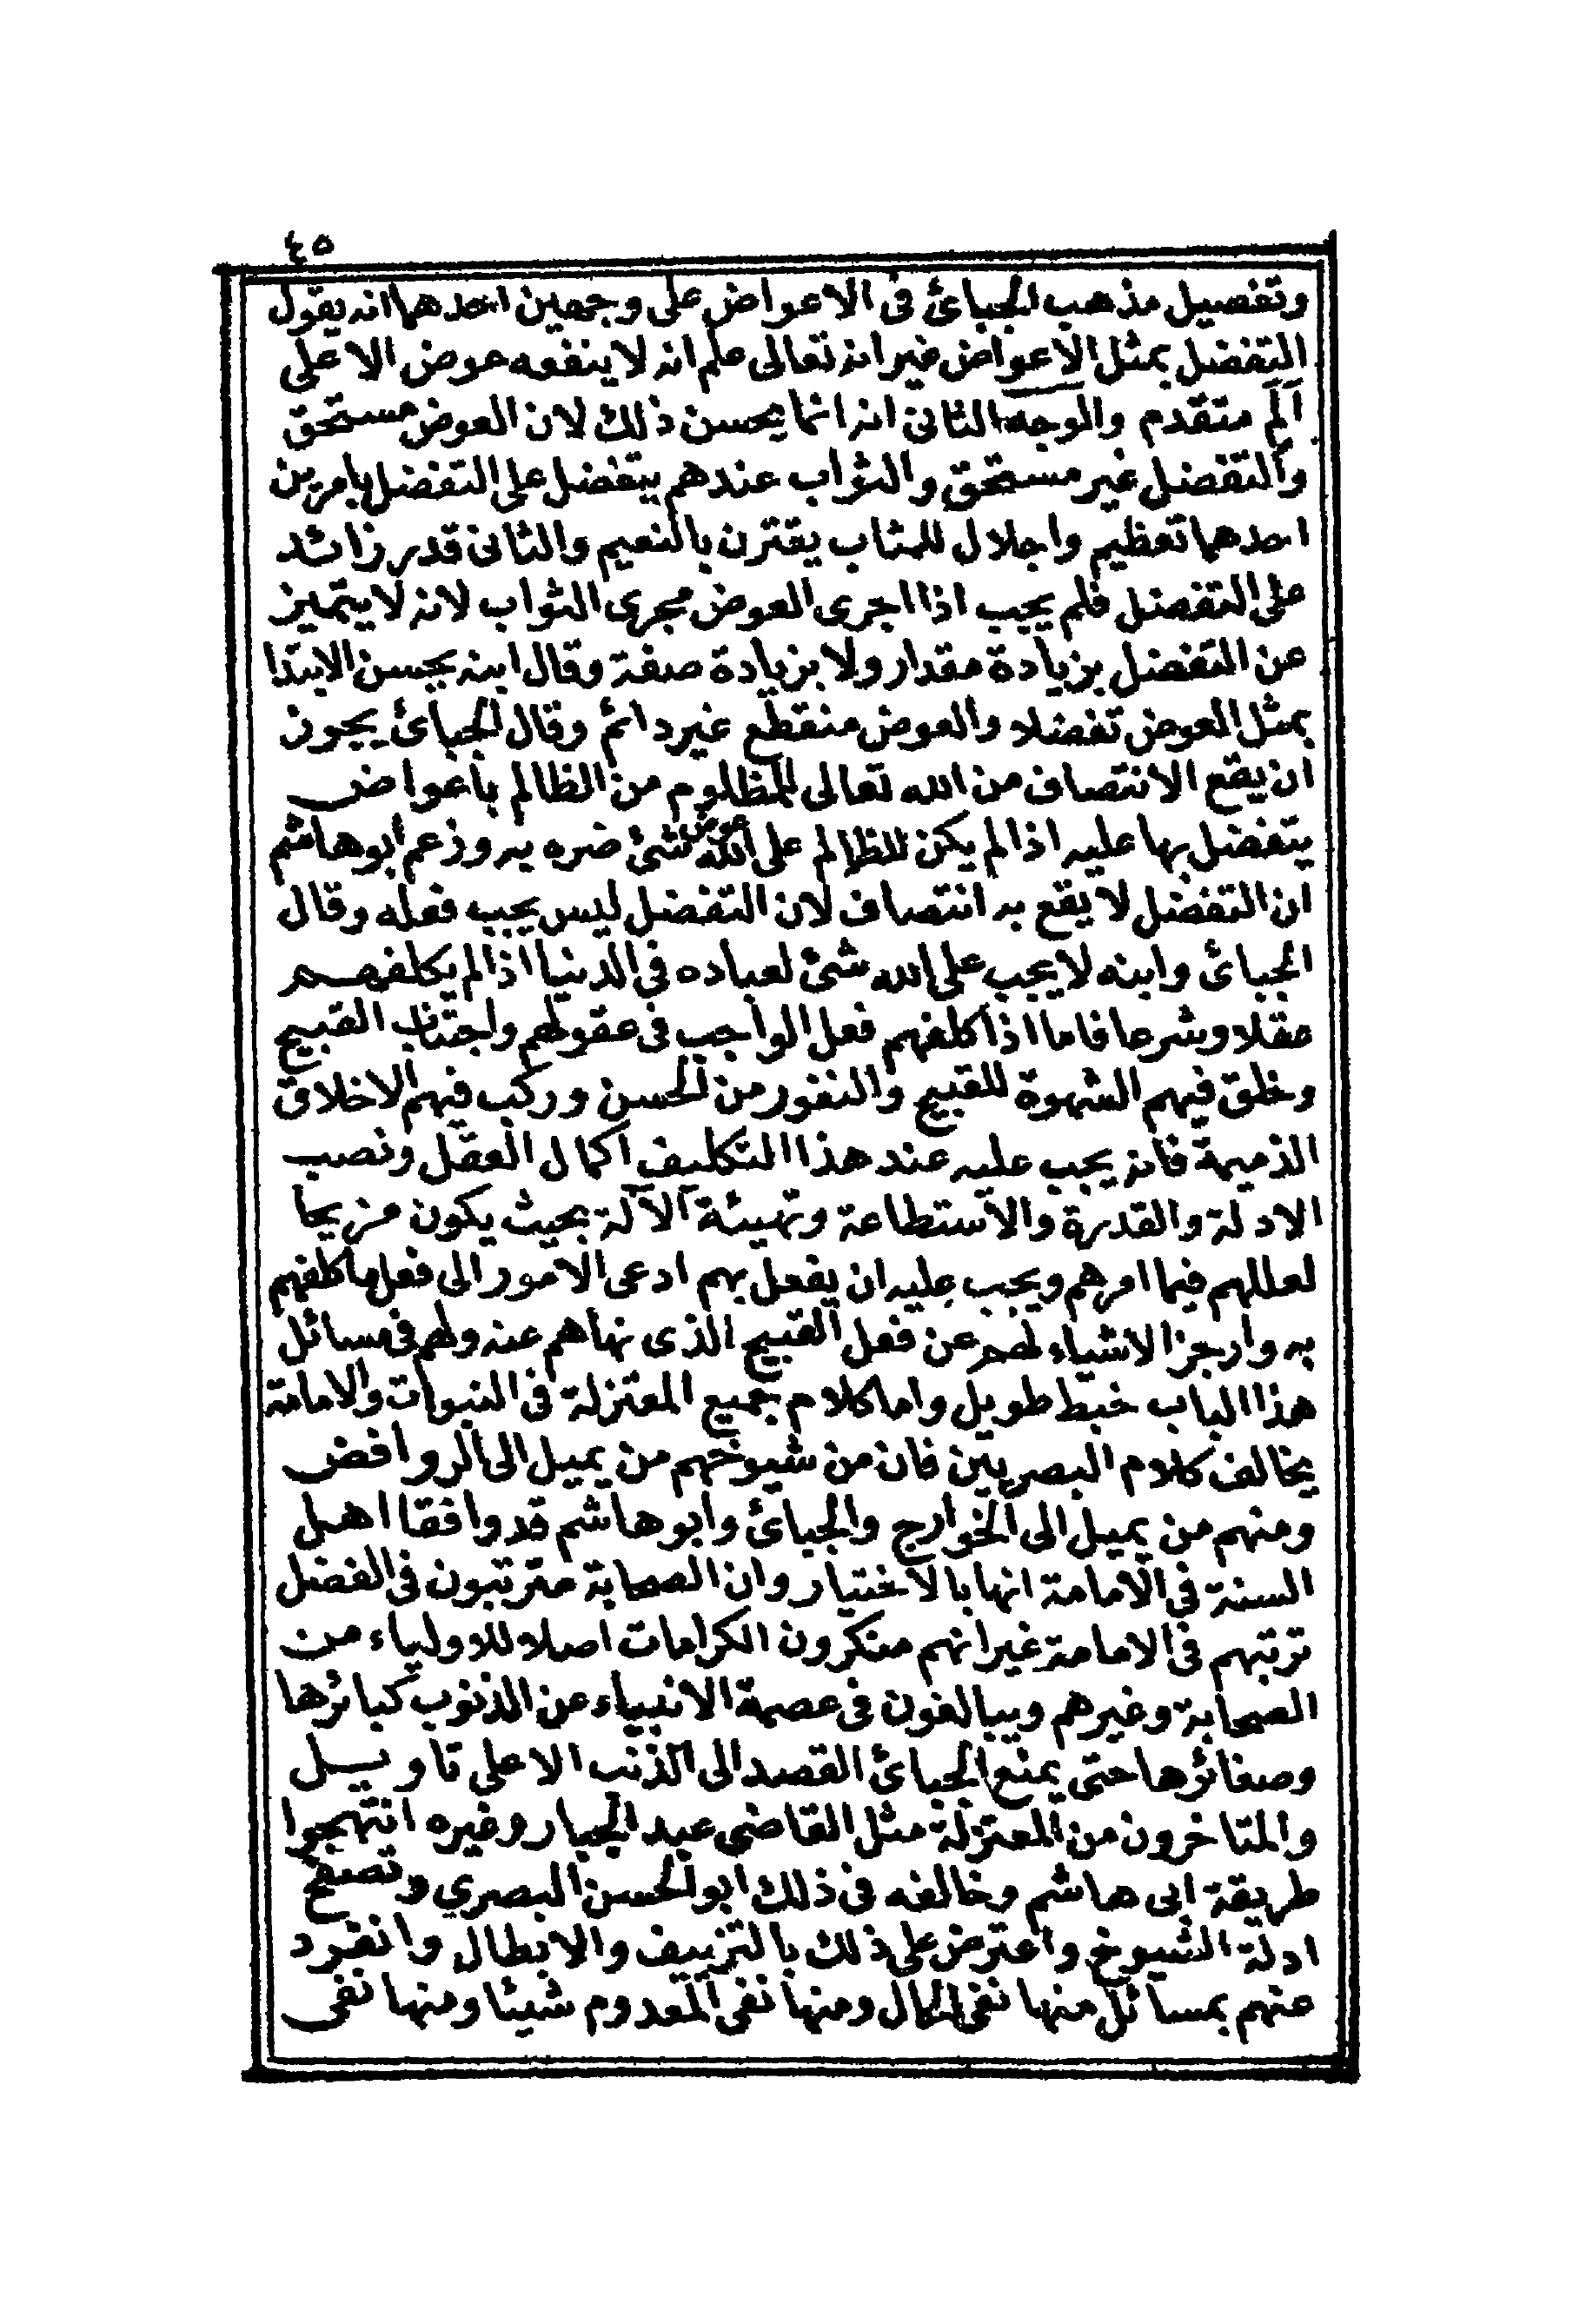 ٤٥
وتفصيل مذهب الجبائ فى الاعواض على وجهين احدهما انه يقول
التفضل بمثل الاعواض غير انه تعالى علم انه لا ينفعه عوض الا على
الم متقدم والوجه الثانى انه انما يحسن ذلك لان العوض مستحق
والتفضل غير مستحق والثواب عندهم يتفضل على التفضل بامرين
احدهما تعظيم واجلال للمثاب يقترن بالنعيم والثانى قدر زائد
على التفضل فلم يجب اذا اجرى العوض مجرى الثواب لانه لا يتميز
عن التفضل بزيادة مقدار ولا بزيادة صفة وقال ابنه يحسن الابتدا
بمثل العوض تفضلا والعوض منقطع غير دائم وقال الجبائ يجون
ان يقع الانتصاف من الله تعالى للمظلوم من الظالم باعواض
يتفضل بها عليه اذا لم يكن للظالم على الله عوض شئ ضره به وزعم ابو هاشم
ان التفضل لا يقع به انتصاف لان التفضل ليس يجب فعله وقال
الجبائ وابنه لا يجب على الله شئ لعباده فى الدنيا اذا لم يكلفهم
عقلا وشرعا فاما اذا كلفهم فعل الواجب فى عقولهم واجتناب القبيح
وخلق فيهم الشهوة للقبيح والنفور من الحسن وركب فيهم الاخلاق
الذميمة فانه يجب عليه عند هذا التكليف اكمال العقل ونصب
الادلة والقدرة والاستطاعة وتهيئة الآلة بحيث يكون مزيحا
لعللهم فيما امرهم ويجب عليه ان يفعل بهم ادعى الامور الى فعل ما كلفهم
به وازجر الاشياء لهم عن فعل القبيح الذى نهاهم عنه ولهم فى مسائل
هذا الباب خبط طويل واما كلام جميع المعتزلة فى النبوات والامامة
يخالف كلام البصريين فان من شيوخهم من يميل الى الروافض
ومنهم من يميل الى الخوارج والجبائ وابو هاشم قد وافقا اهل
السنة فى الامامة انها بالاختيار وان الصحابة مترتبون فى الفضل
ترتبهم فى الامامة غير انهم منكرون الكرامات اصلا للاولياء من
الصحابة وغيرهم ويبالغون فى عصمة الانبياء عن الذنوب كبائرها
وصغائرها حتى يمنع الجبائ القصد الى الذنب الا على تاويل
والمتاخرون من المعتزلة مثل القاضى عبد الجبار وغيره انتهجوا
طريقة ابى هاشم وخالفه فى ذلك ابو الحسن البصري وتصفح
ادلة الشيوخ واعترض على ذلك بالتزييف والابطال وانفرد
عنهم بمسائل منها نفى الحال ومنها نفى المعدوم شيئا ومنها نفى